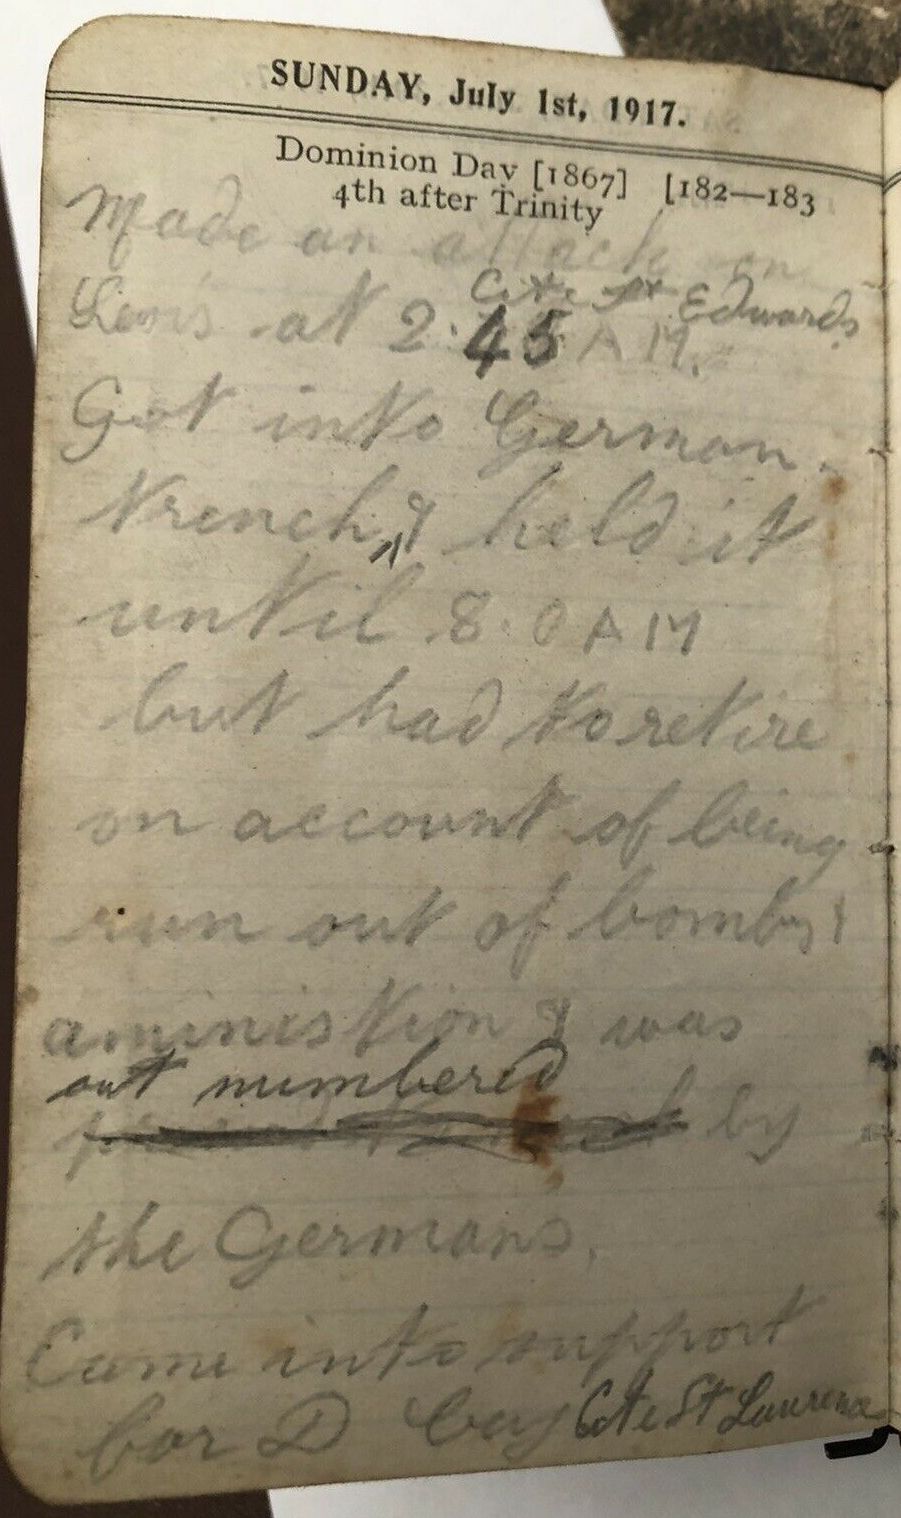 SUNDAY, July 1st, 1917.
Dominion Day [1867] [182—183
4th after Trinity
Made an attack on
Cite St Edwards
Lens at 2.45 A M.
Got into German
trench & held it
until 8.0 A M
but had to retire
on account of being
run out of bombs &
aministion & was
out numbered
by
the Germans.
Came into support
for D Coy Cite St Laurence